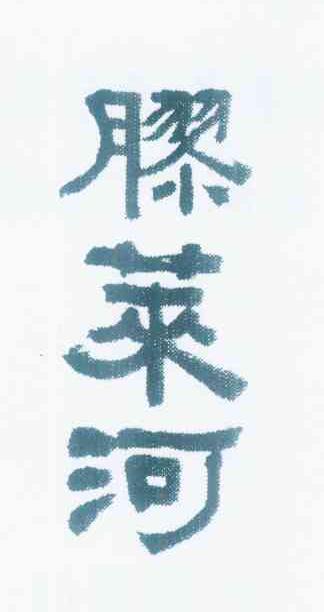 膠萊河